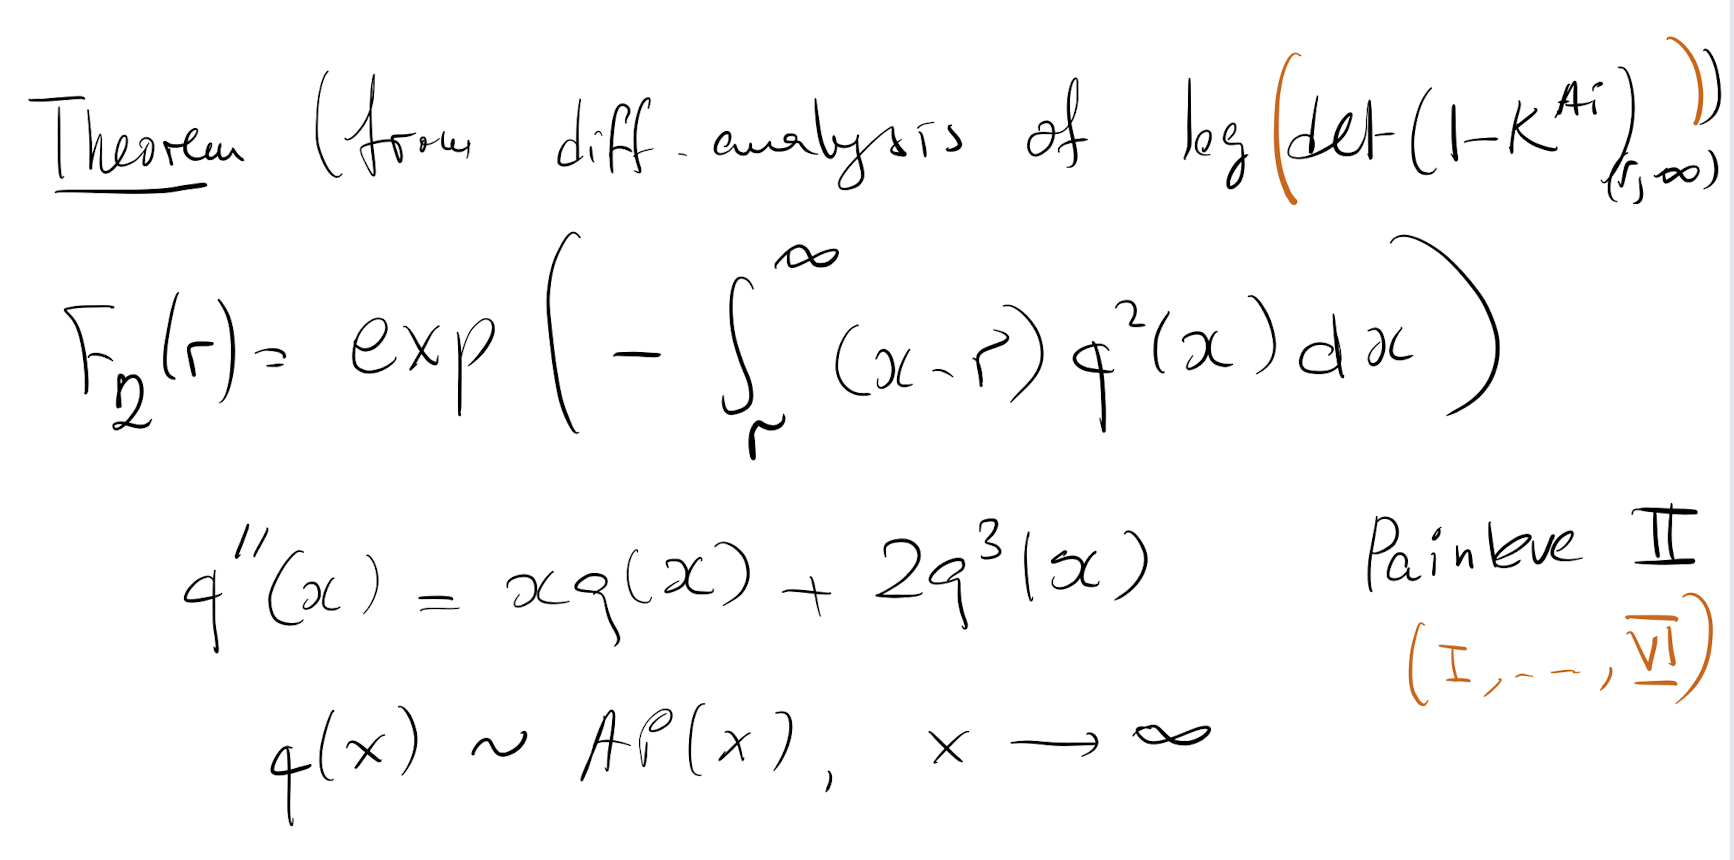 Theorem (from diff. analysis of log(det(1-K^Ai)_(r,∞)))
F_2(r) = exp(-∫_r^∞ (x-r) q²(x) dx)
q''(x) = xq(x) + 2q³(x) Painleve II
(I, ---, VI)
q(x) ~ Ai(x), x → ∞